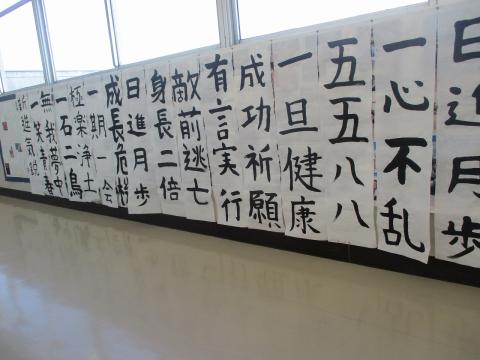 日進月歩
一心不乱
五五八八
一旦健康
成功祈願
有言実行
敵前逃亡
身長二倍
日進月歩
成長危惧
一期一会
極楽浄土
一石二鳥
無我夢中